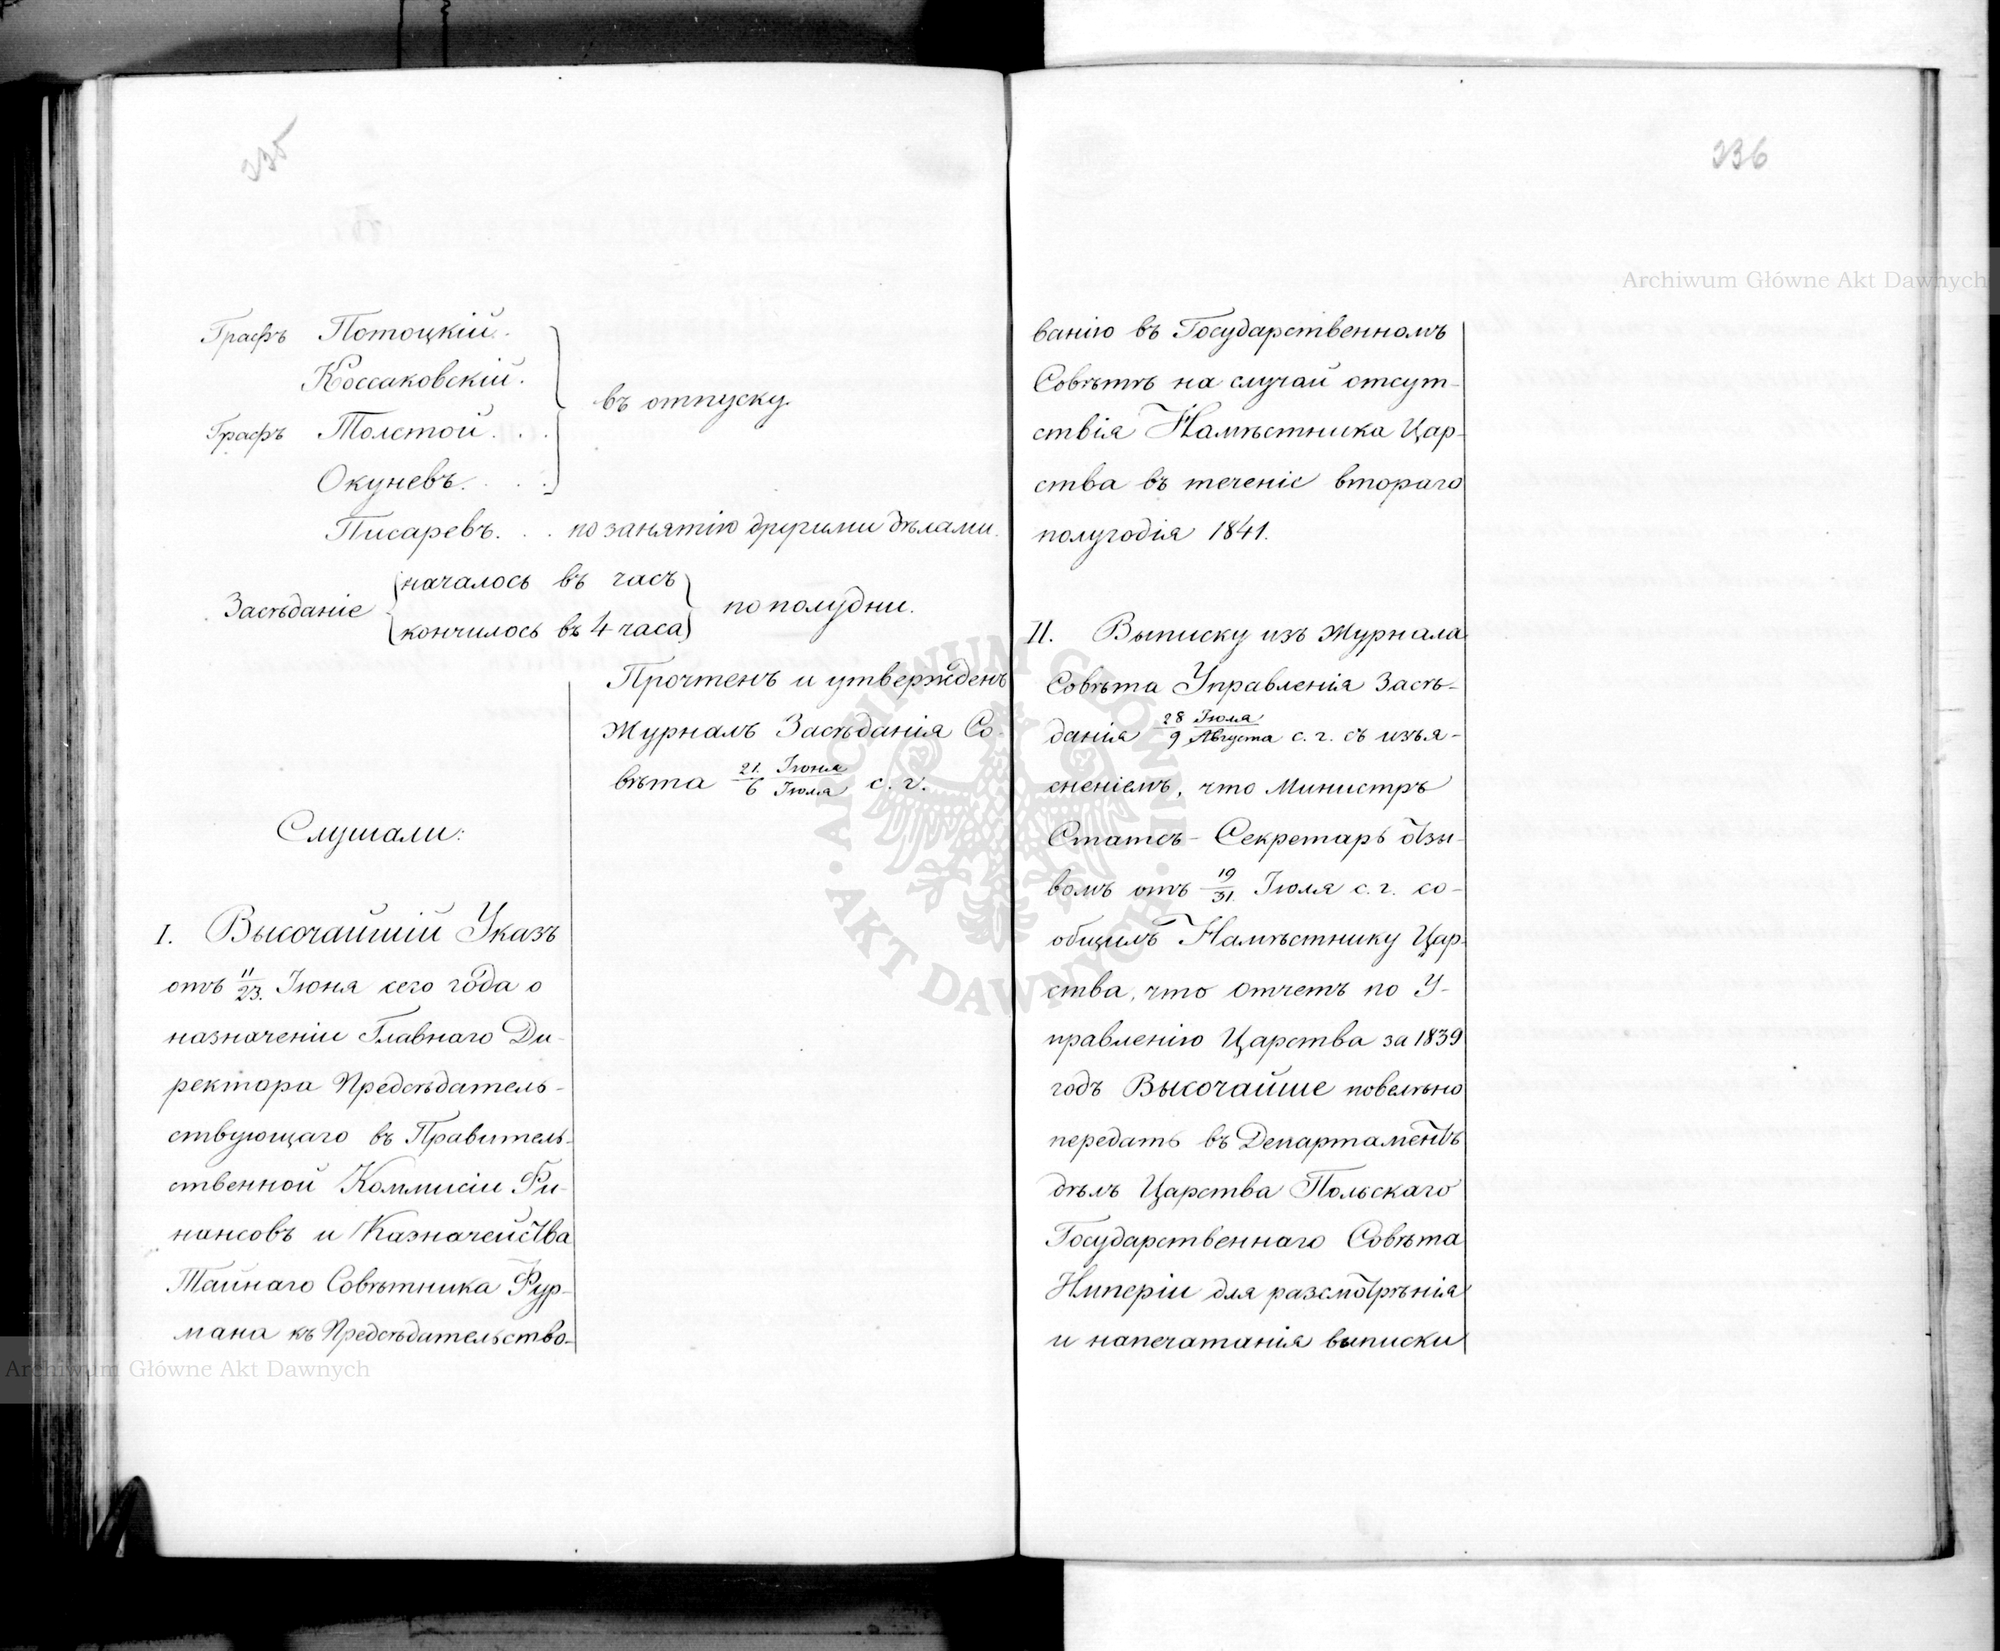 235
Графъ Потоцкій.
Коссаковскій.
Графъ Толстой . . .
Окуневъ. . . .
въ отпуску.
Писаревъ. . . по занятію другими дѣлами.
Засѣданіе
началось въ часъ
кончилось въ 4 часа
по полудни.
Прочтенъ и утвержденъ
Журналъ Засѣданія Со-
вѣта 21. Іюня / 6 Іюля с. г.
Слушали:
I. Высочайшій Указъ
отъ 11/23. Іюня сего года о
назначеніи Главнаго Ди-
ректора Предсѣдатель-
ствующаго въ Правитель-
ственной Коммисіи Фи-
нансовъ и Казначейства
Тайнаго Совѣтника Фур-
мана къ Предсѣдательство-
236
ванію въ Государственномъ
Совѣтѣ на случай отсут-
ствія Намѣстника Цар-
ства въ теченіе втораго
полугодія 1841.
II. Выписку изъ Журнала
Совѣта Управленія Засѣ-
данія 28 Іюля / 9 Августа с. г. съ изъя-
сненіемъ, что Министръ
Статсъ-Секретарь отзы-
вомъ отъ 19/31. Іюля с. г. со-
общилъ Намѣстнику Цар-
ства, что отчетъ по У-
правленію Царства за 1839
годъ Высочайше повелѣно
передать въ Департаментъ
дѣлъ Царства Польскаго
Государственнаго Совѣта
Имперіи для разсмотрѣнія
и напечатанія выписки
Archiwum Główne Akt Dawnych
Archiwum Główne Akt Dawnych
ARCHIWUM GŁÓWNE · AKT DAWNYCH ·